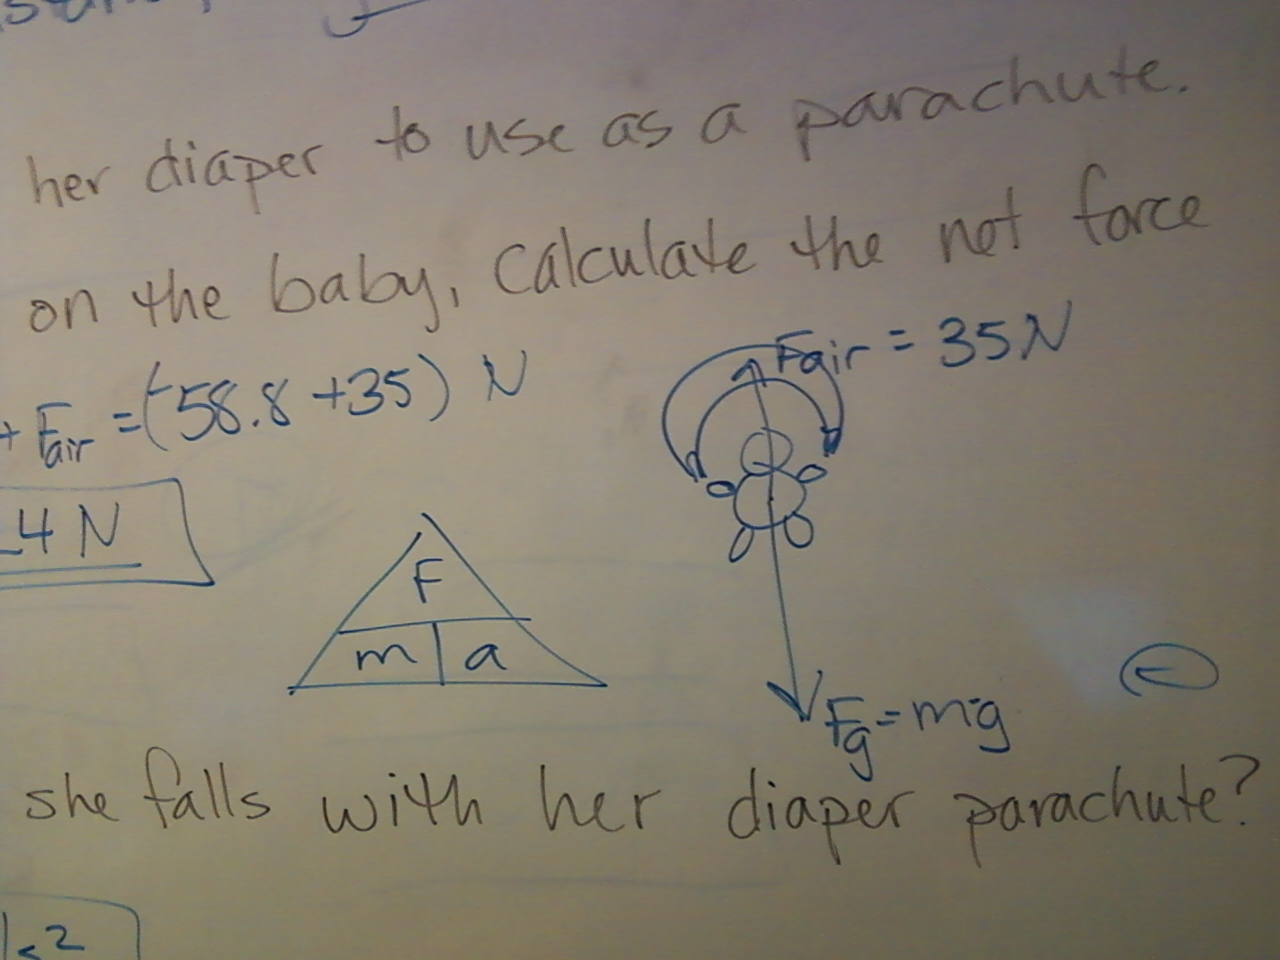 her diaper to use as a parachute.
on the baby, calculate the net force
+ Fair = (-58.8 + 35) N
Fair = 35N
4 N
F
m a
Fg = mg
she falls with her diaper parachute?
s²